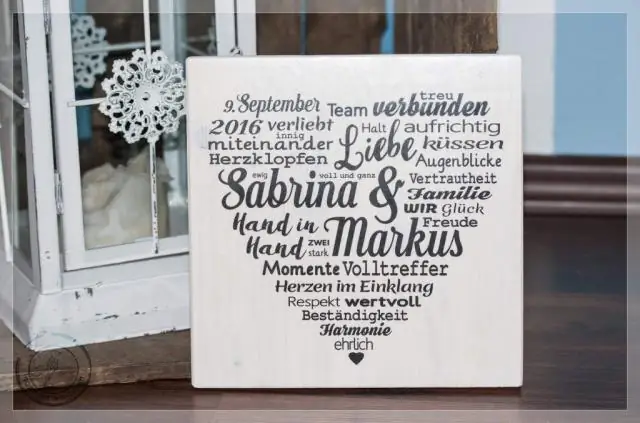 9. September Team treu verbunden
2016 verliebt Halt aufrichtig
innig
miteinander Liebe küssen
Herzklopfen Augenblicke
ewig voll und ganz Vertrautheit
Sabrina & Familie
WIR Glück
Hand in Freude
Hand zwei stark Markus
Momente Volltreffer
Herzen im Einklang
Respekt wertvoll
Beständigkeit
Harmonie
ehrlich